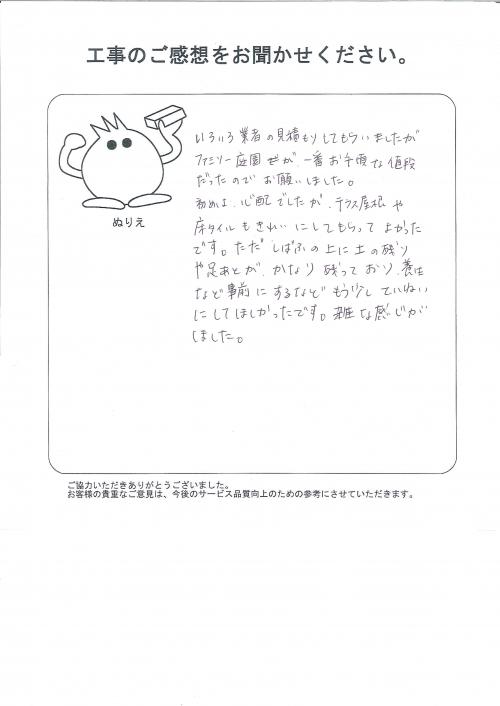 工事のご感想をお聞かせください。
いろいろ業者の見積もりしてもらいましたが
ファミリー庭園さんが、一番お手頃な値段
だったのでお願いしました。
初めは、心配でしたが、テラス屋根や
床タイルもきれいにしてもらってよかった
です。ただしばふの上に土の残り
や足あとが、かなり残っており、養生
など事前にするなどもう少していねい
にしてほしかったです。雑な感じが
しました。
ぬりえ
ご協力いただきありがとうございました。
お客様の貴重なご意見は、今後のサービス品質向上のための参考にさせていただきます。